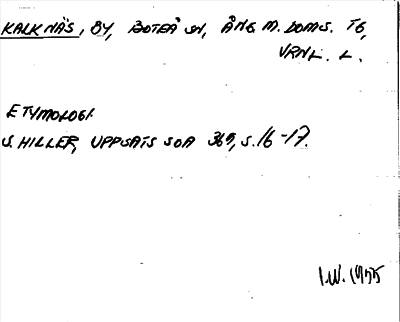 KALKNÄS, BY, BOTEÅ SN, ÅNG M. DOMS. TG,
VRNL. L.
ETYMOLOGI.
S. HILLER, UPPSATS SOA 369, S. 16-17.
I.W. 1955